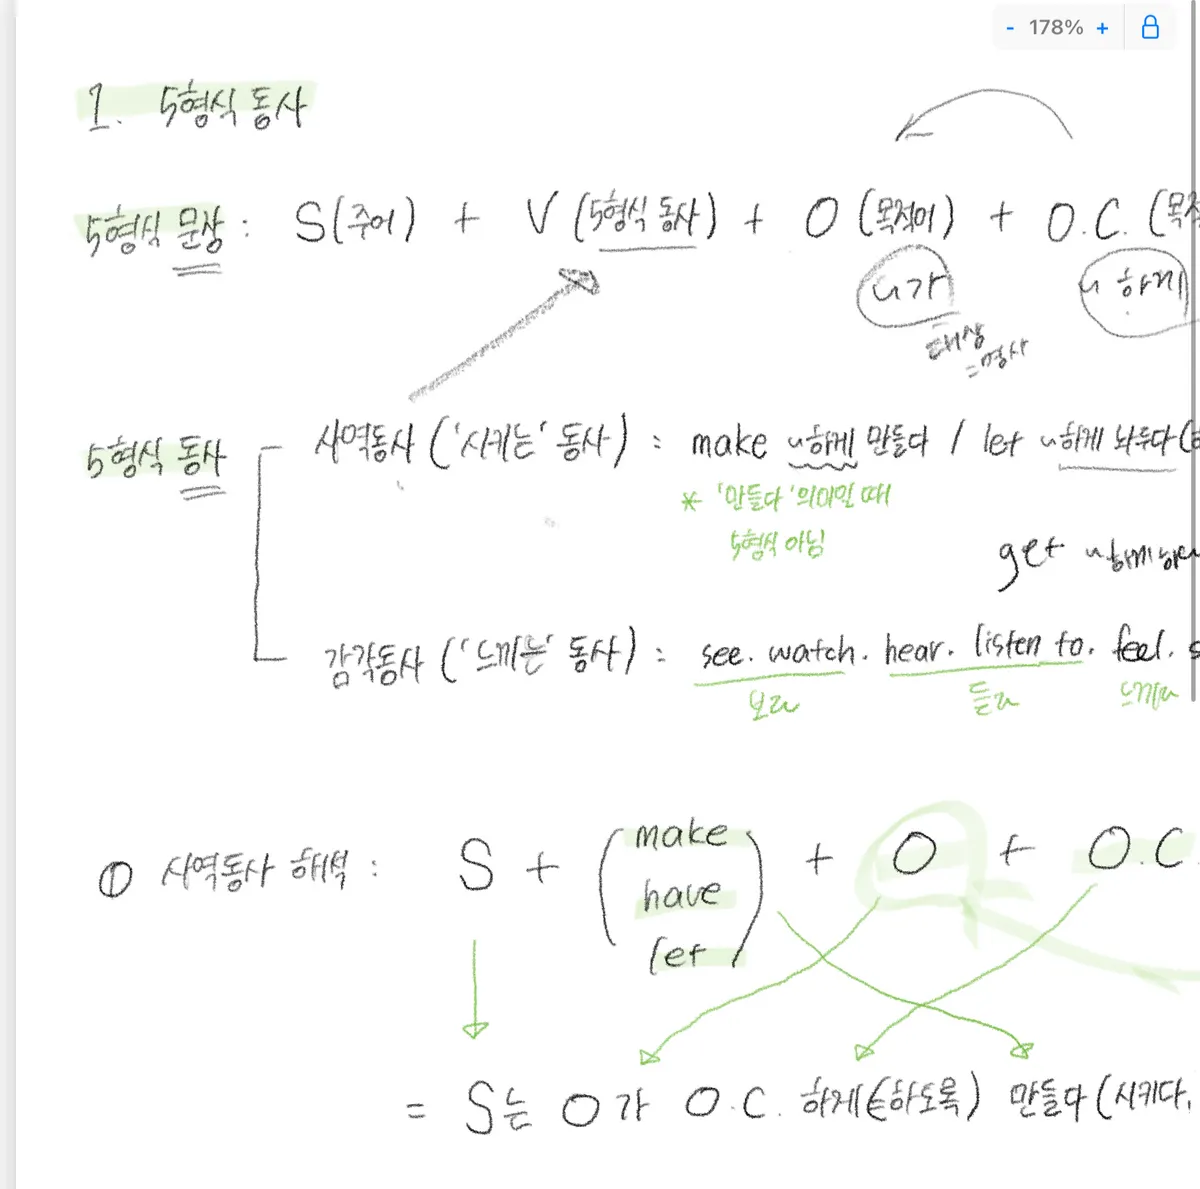 - 178% +
1. 5형식 동사
5형식 문장 : S(주어) + V (5형식 동사) + O (목적어) + O.C. (목적
~가 ~하게
대상
=명사
5형식 동사
사역동사 ('시키는' 동사) : make ~하게 만들다 / let ~하게 놔두다 (
* '만들다' 의미일 때
5형식 아님
get ~하게
감각동사 ('느끼는' 동사) : see. watch. hear. listen to. feel. s
보다 듣다 느끼다
① 사역동사 해석 : S + ( make have let ) + O + O.C.
= S는 O가 O.C. 하게(하도록) 만들다 (시키다,